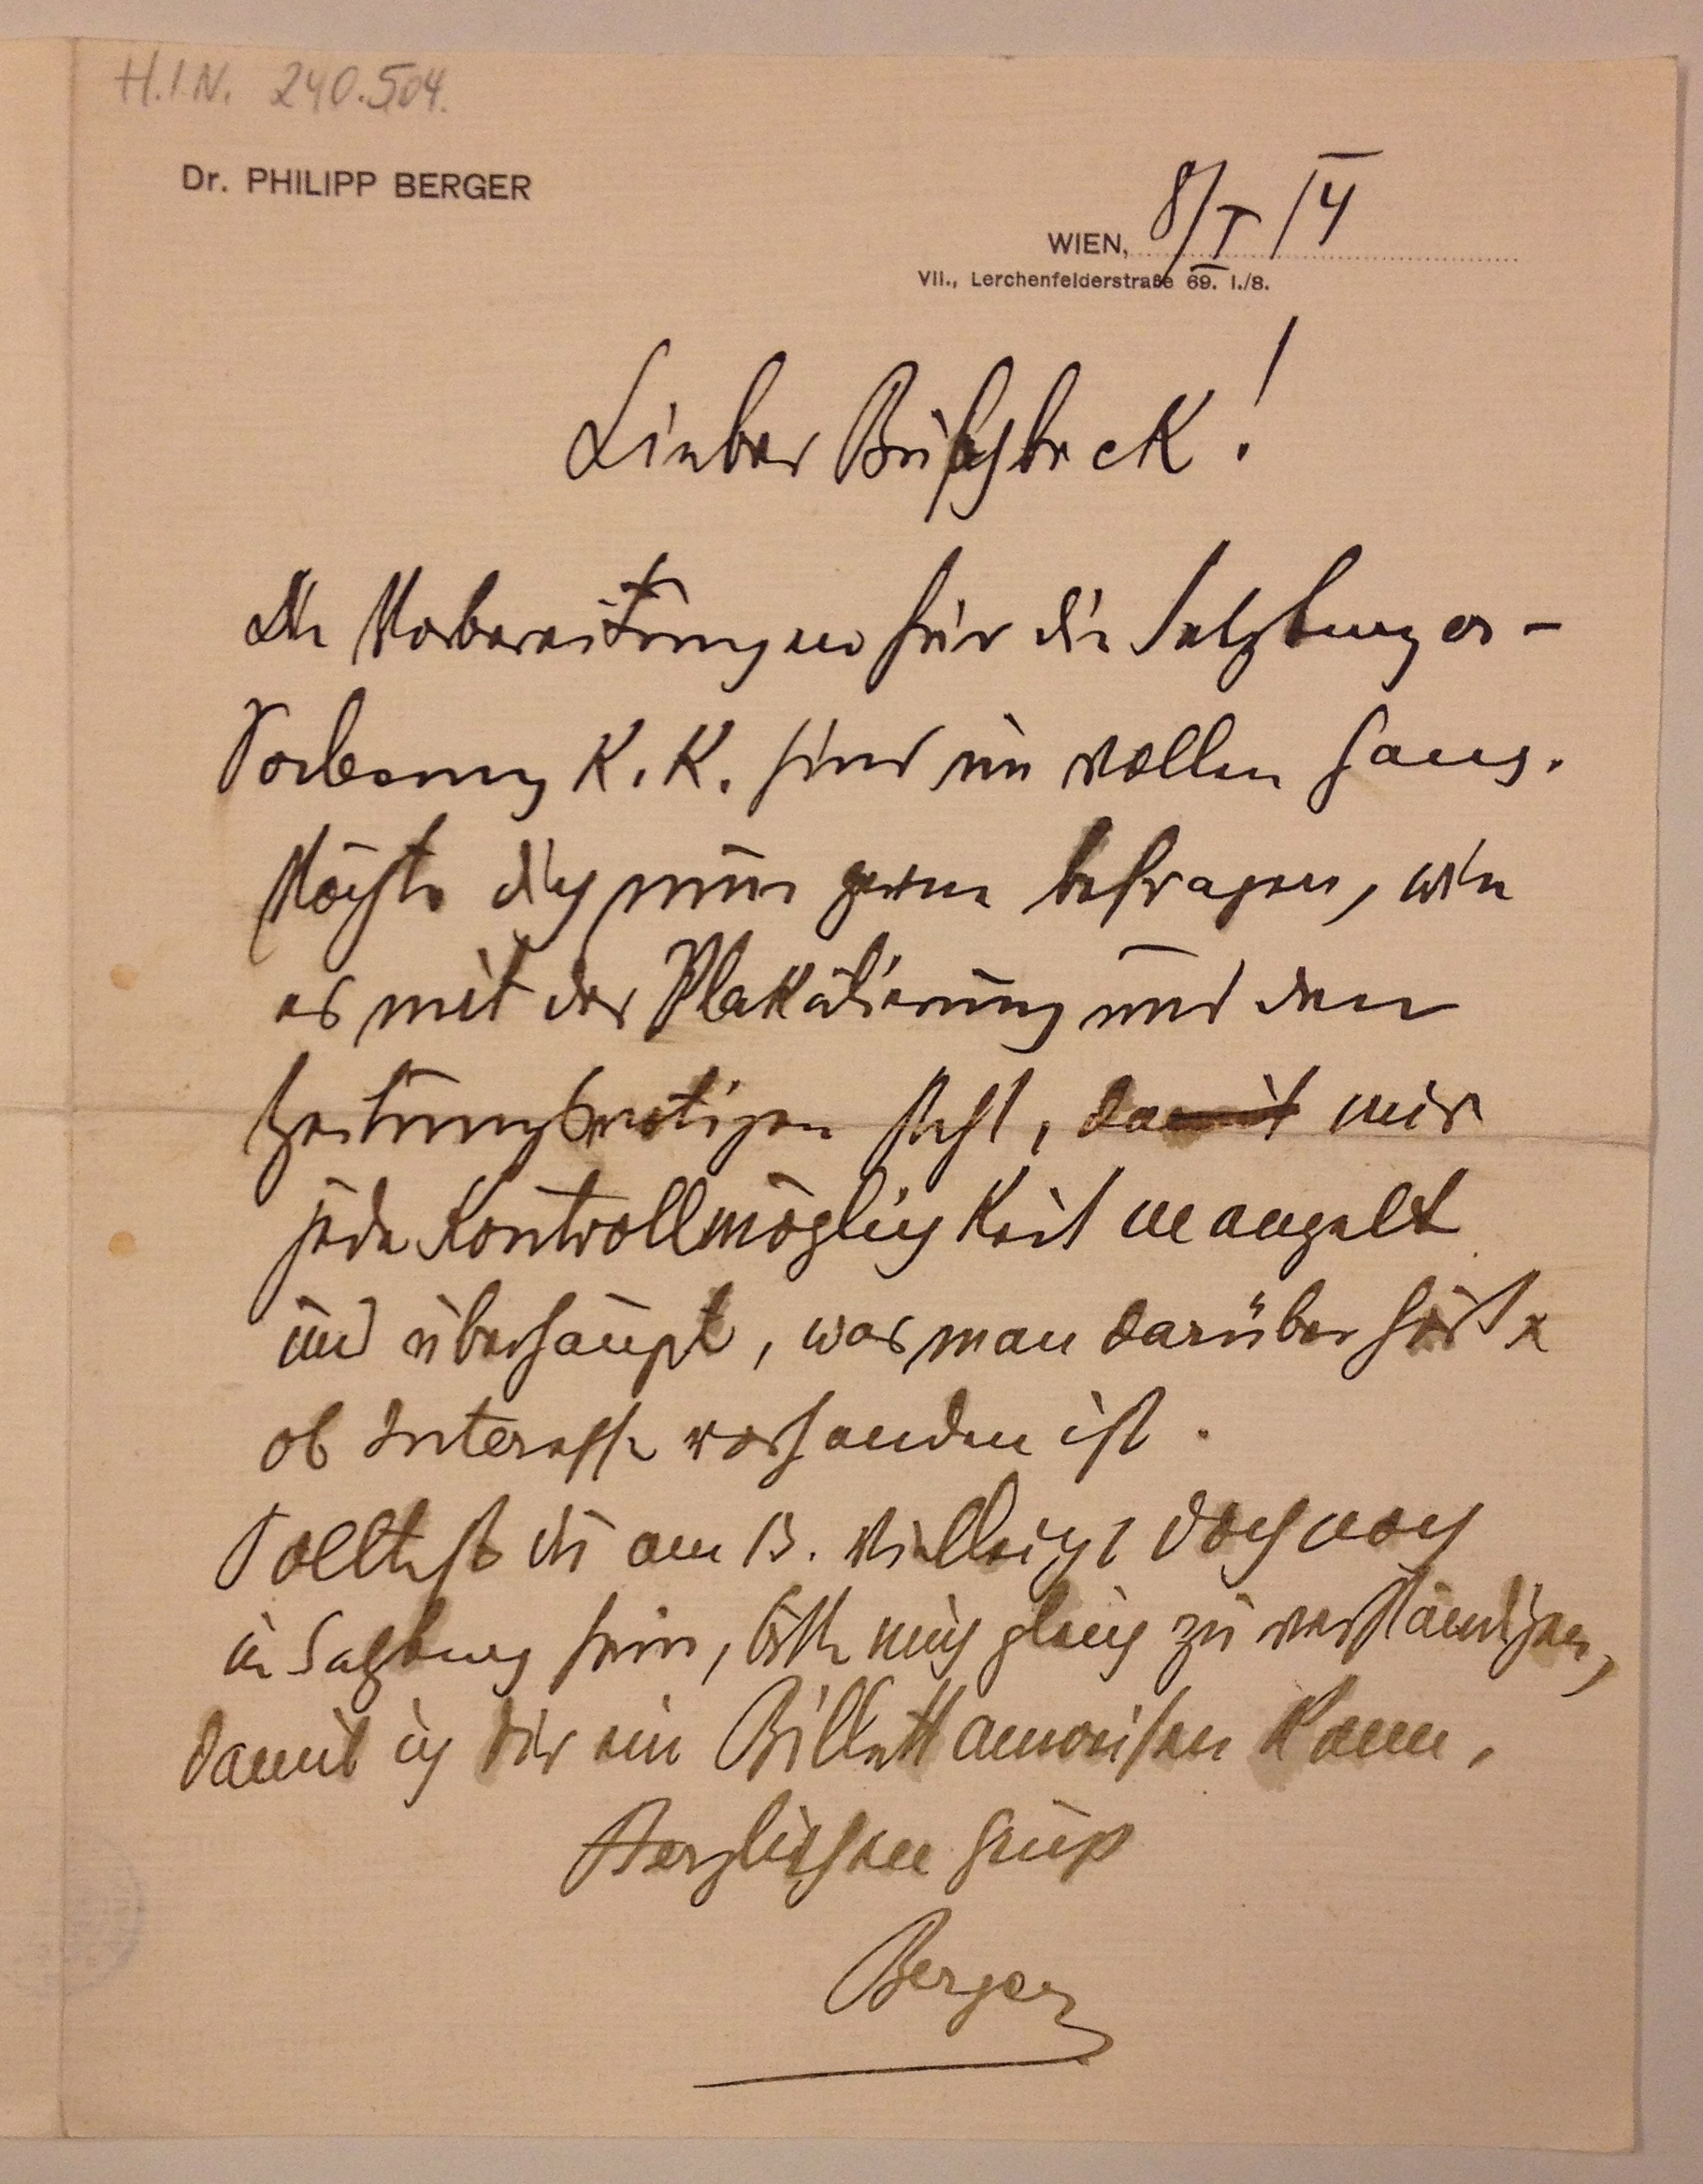 H.I.N. 240.504.
Dr. PHILIPP BERGER
WIEN, 8/I 14
VII., Lerchenfelderstraße 69. I./8.
Lieber Buschbeck!
Die Vorbereitungen für die Salzburger-
Vorlesung K. K. sind im vollen Gang.
Möchte dich nun gerne befragen, wie
es mit der Plakatierung und den
Zeitungsnotizen steht, da mir
jede Kontrollmöglichkeit mangelt
und überhaupt, was man darüber hört &
ob Interesse vorhanden ist.
Solltest du am 13. vielleicht doch noch
in Salzburg sein, bitte mich gleich zu verständigen,
damit ich dir ein Billett anweisen kann.
Herzlichen Gruß
Berger